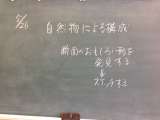 5/26 自然物による構成
断面のおもしろい形を
発見する
↓
スケッチする